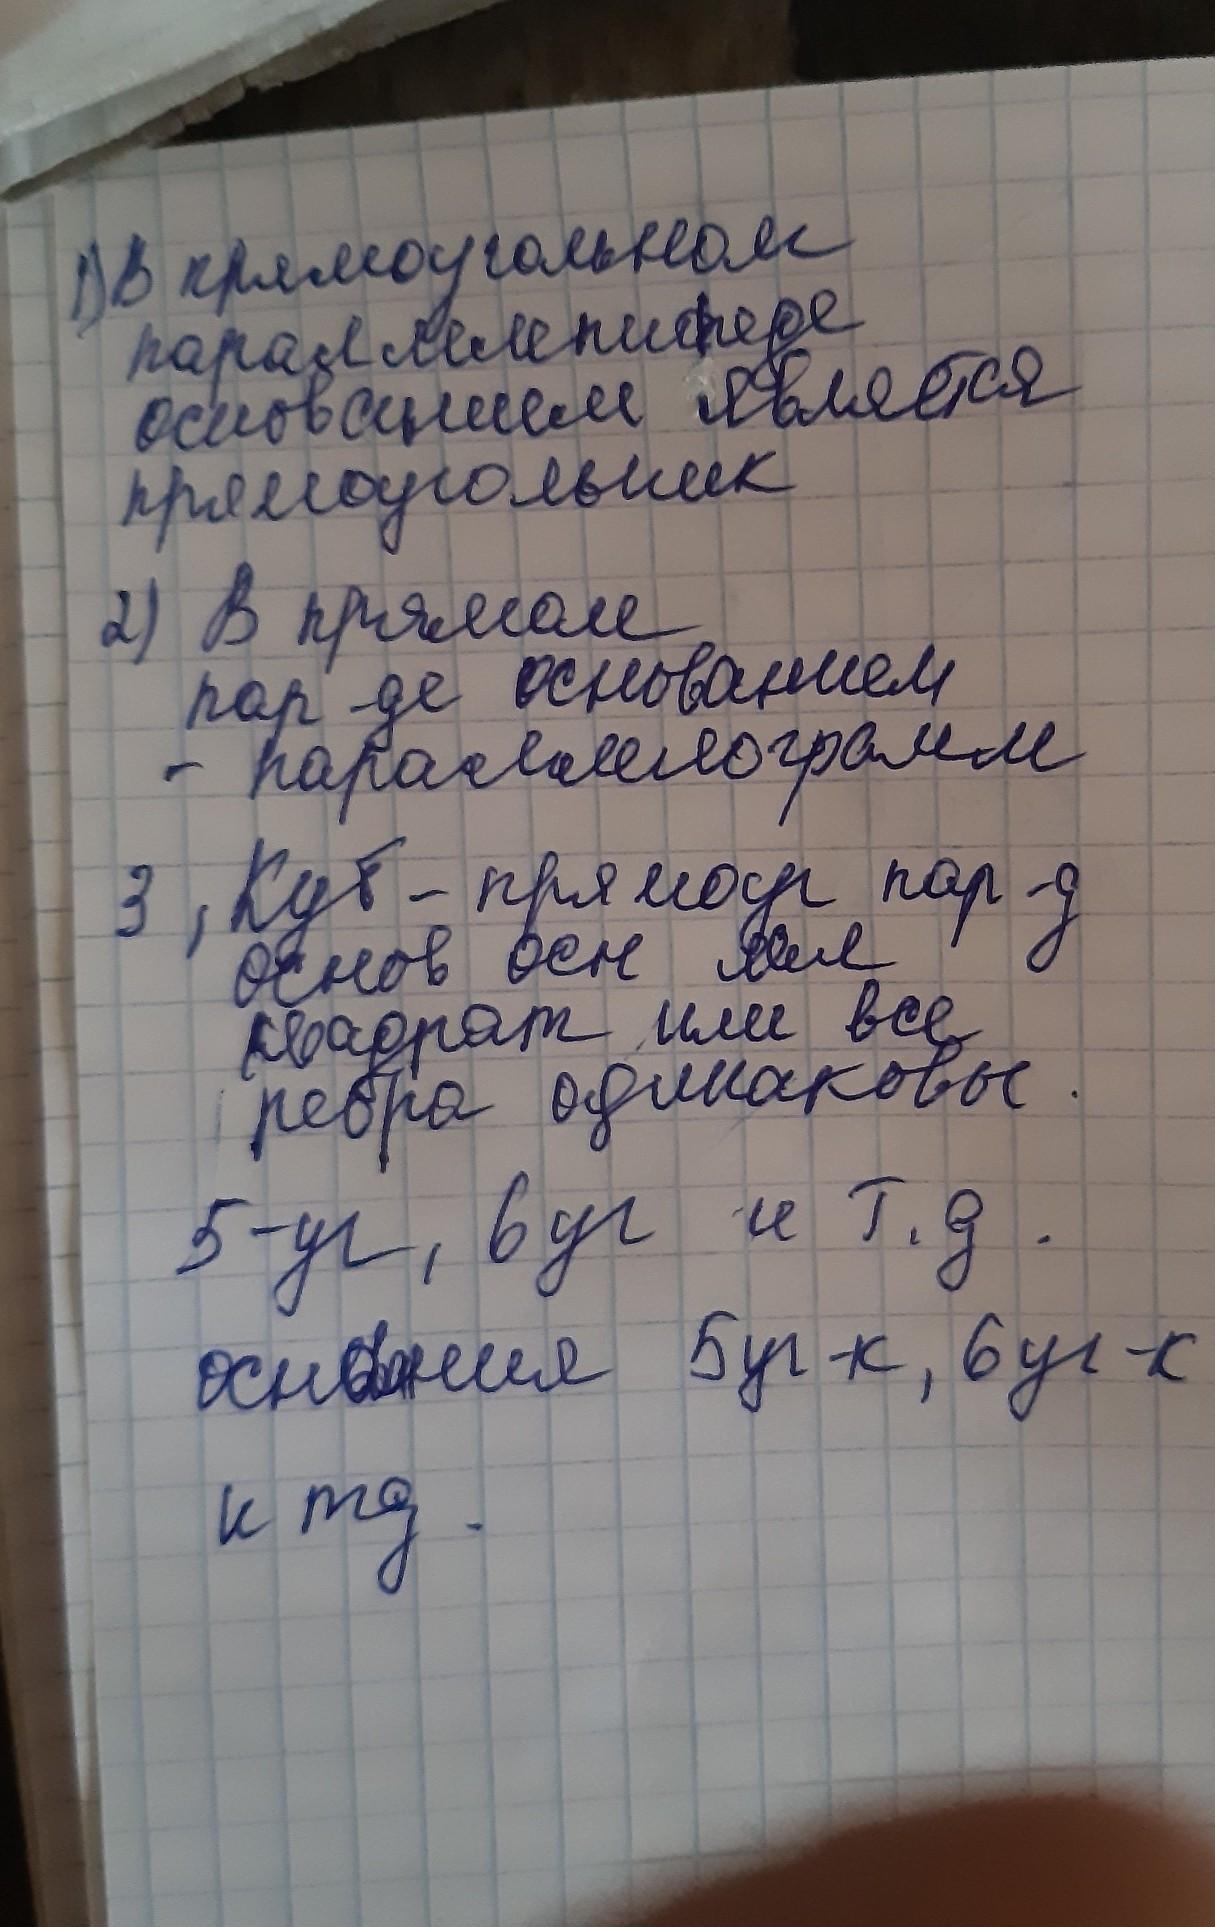 1) В прямоугольном
параллелепипеде
основанием является
прямоугольник
2) В прямом
пар-де основанием
- параллелограмм
3, Куб - прямоуг пар-д
основ осн
квадрат или все
ребра одинаковы.
5-уг, 6 уг и т.д.
основания 5уг-к, 6уг-к
и тд.